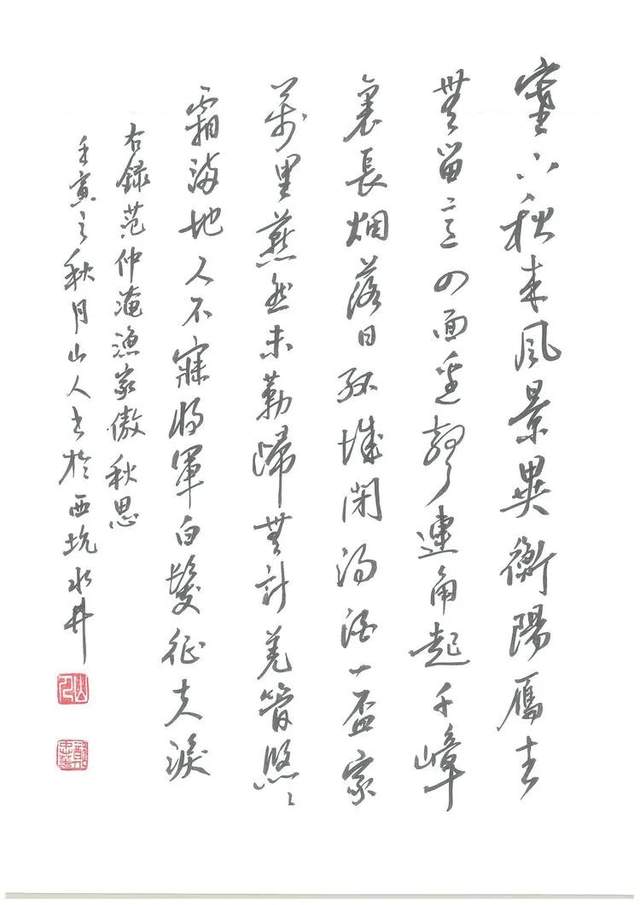 塞下秋来風景異衡陽雁去
無留意四面邊聲連角起千嶂
裏長烟落日孤城閉濁酒一盃家
萬里燕然未勒歸無計羌管悠〻
霜滿地人不寐將軍白髮征夫淚
右録范仲淹漁家傲秋思
壬寅之秋月山人書於西坑水井